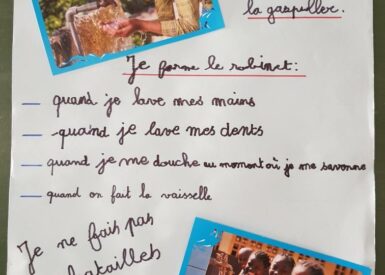 la gaspiller.
Je ferme le robinet:
— quand je lave mes mains
— -quand je lave mes dents
— quand je me douche au moment où je me savonne
— quand on fait la vaisselle
Je ne fais pas
batailles